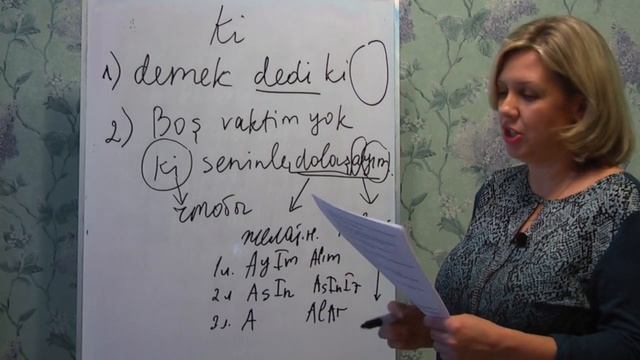 ki
1) demek dedi ki
2) Boş vaktim yok
ki seninle dolaşayım.
чтобы
желат.н.
1л. AyIm AlIm
2л AsIn AsInIz
3л. A AlAr